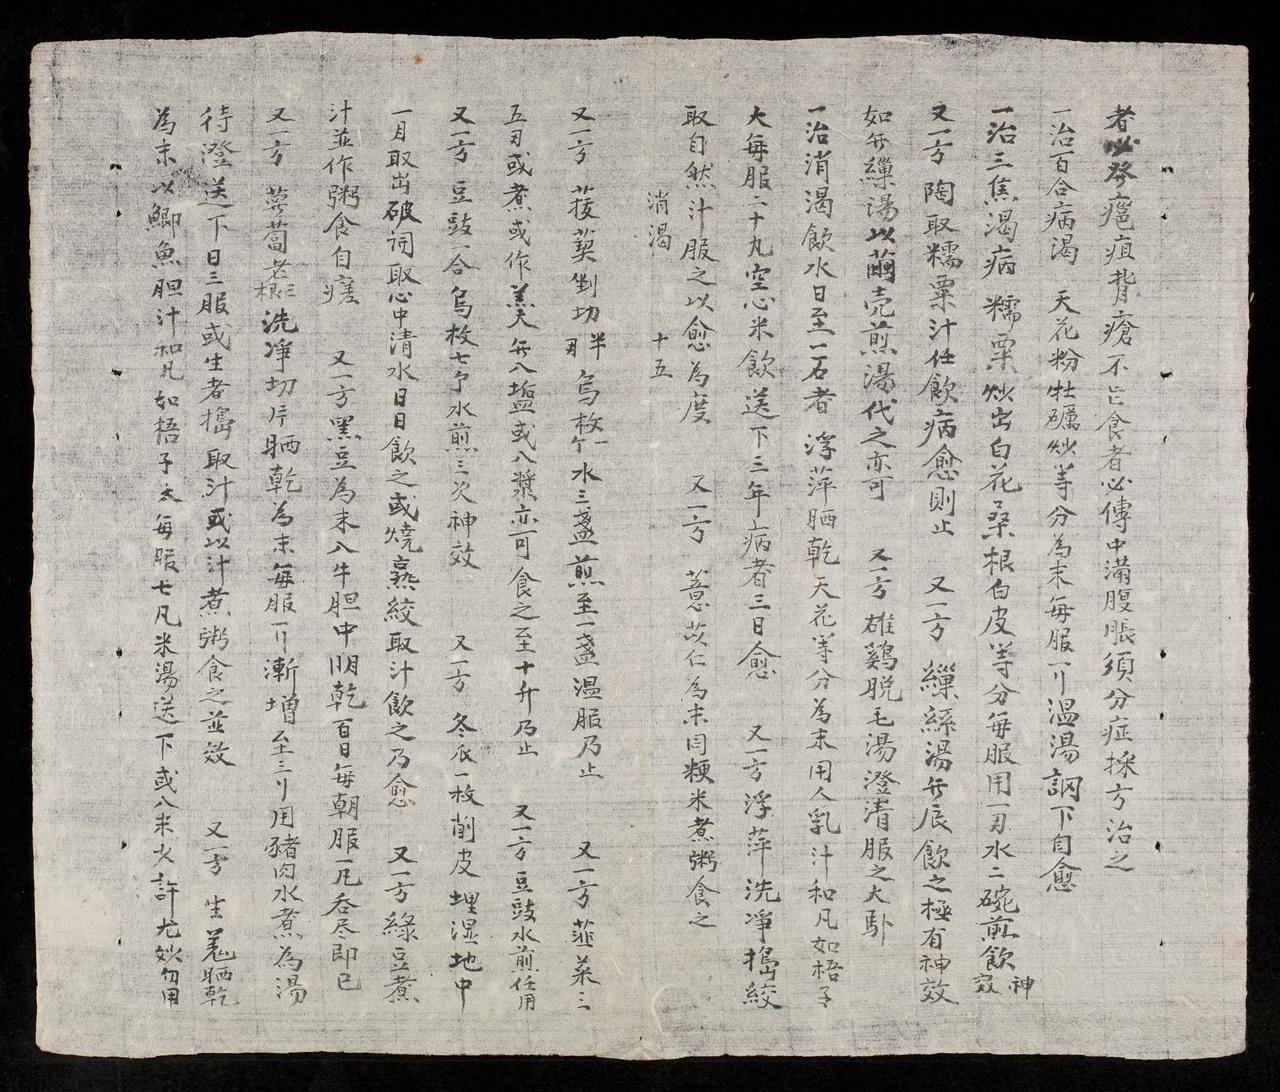 者必發癰疽背瘡不能食者必傳中滿腹脹須分症採方治之
一治百合病渴 天花粉牡礪炒等分為末每服一刂温湯調下自愈
一治三焦渴病 糯粟炒出白花桑根白皮等分每服用一刄水二碗煎飲神效
又一方 陶取糯粟汁任飲病愈則止 又一方 繅絲湯無辰飲之極有神效
如無繅湯以繭壳煎湯代之亦可 又一方雄鷄脱毛湯澄清服之大馿
一治消渴飲水日至一石者 浮萍晒乾天花等分為末用人乳汁和凡如梧子
大每服二十九空心米飲送下三年病者三日愈 又一方浮萍洗凈搗絞
取自然汁服之以愈為度 又一方 薏苡仁為末同粳米煮粥食之
消渴 十五
又一方 菝葜剉切半刄烏枚一个水三盞煎至一盞温服乃止 又一方 韮菜三
五刄或煮或作羹無入塩或入漿亦可食之至十升乃止 又一方豆豉水煎任用
又一方 豆豉一合烏枚七个水煎三次神效 又一方 冬瓜一枚削皮埋湿地中
一月取出破词取心中清水日日飲之或燒熟絞取汁飲之乃愈 又一方綠豆煮
汁並作粥食自瘥 又一方黑豆為末入牛胆中阴乾百日每朝服一凡吞尽即已
又一方 蔔老根三洗凈切片晒乾為末每服一刂漸增至三刂用豬肉水煮為湯
待澄送下日三服或生者搗取汁或以汁煮粥食之並效 又一方 生晒乾
為末以鯽魚胆汁和凡如梧子大每服七凡米湯送下或入米少許尤妙勿用